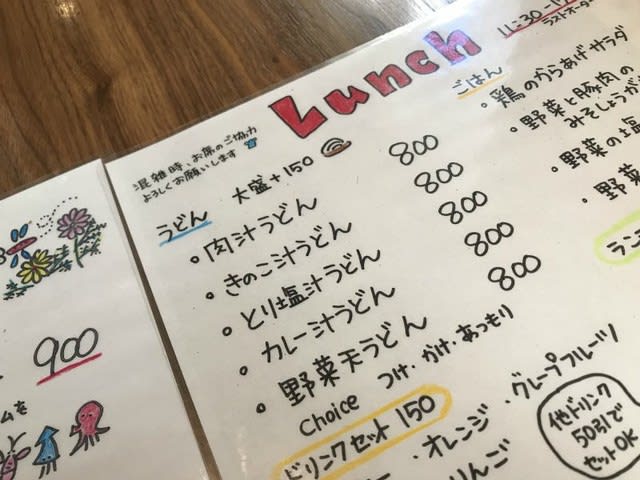 Lunch
11:30-1
ラストオーダー
混雑時、お席のご協力
よろしくお願いします
うどん 大盛+150
・肉汁うどん 800
・きのこ汁うどん 800
・とり塩汁うどん 800
・カレー汁うどん 800
・野菜天うどん 800
choice つけ・かけ・あつもり
ドリンクセット 150
・オレンジ ・グレープフルーツ
りんご
他ドリンク
50引で
セットOK
ごはん
・鶏のからあげサラダ
・野菜と豚肉の
みそしょうが
・野菜の塩
・野菜
ラン
900
ムを